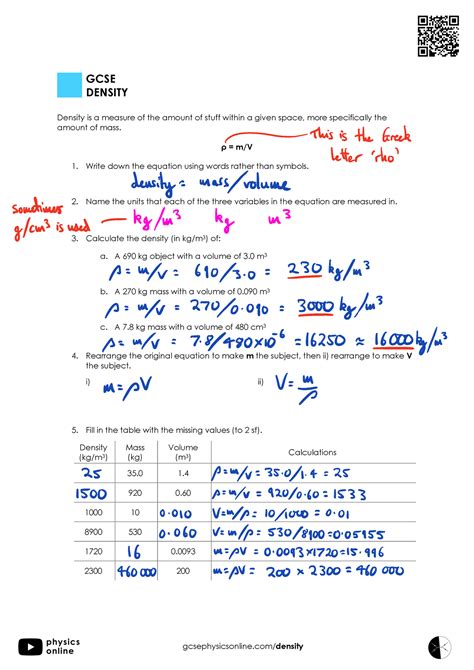 GCSE
DENSITY
Density is a measure of the amount of stuff within a given space, more specifically the
amount of mass.
ρ = m/V
This is the Greek
letter 'rho'
1. Write down the equation using words rather than symbols.
density = mass/volume
2. Name the units that each of the three variables in the equation are measured in.
Sometimes
g/cm³ is used
kg/m³ kg m³
3. Calculate the density (in kg/m³) of:
a. A 690 kg object with a volume of 3.0 m³
ρ = m/V = 690/3.0 = 230 kg/m³
b. A 270 kg mass with a volume of 0.090 m³
ρ = m/V = 270/0.090 = 3000 kg/m³
c. A 7.8 kg mass with a volume of 480 cm³
ρ = m/V = 7.8/480×10⁻⁶ = 16250 ≈ 16000 kg/m³
4. Rearrange the original equation to make m the subject, then ii) rearrange to make V
the subject.
i) m = ρV ii) V = m/ρ
5. Fill in the table with the missing values (to 2 sf).
Density (kg/m³) Mass (kg) Volume (m³) Calculations
25 35.0 1.4 ρ = m/V = 35.0/1.4 = 25
1500 920 0.60 ρ = m/V = 920/0.60 = 1533
1000 10 0.010 V = m/ρ = 10/1000 = 0.01
8900 530 0.060 V = m/ρ = 530/8900 = 0.05955
1720 16 0.0093 m = ρV = 0.0093×1720 = 15.996
2300 460 000 200 m = ρV = 200 × 2300 = 460 000
physics
online
gcsephysicsonline.com/density